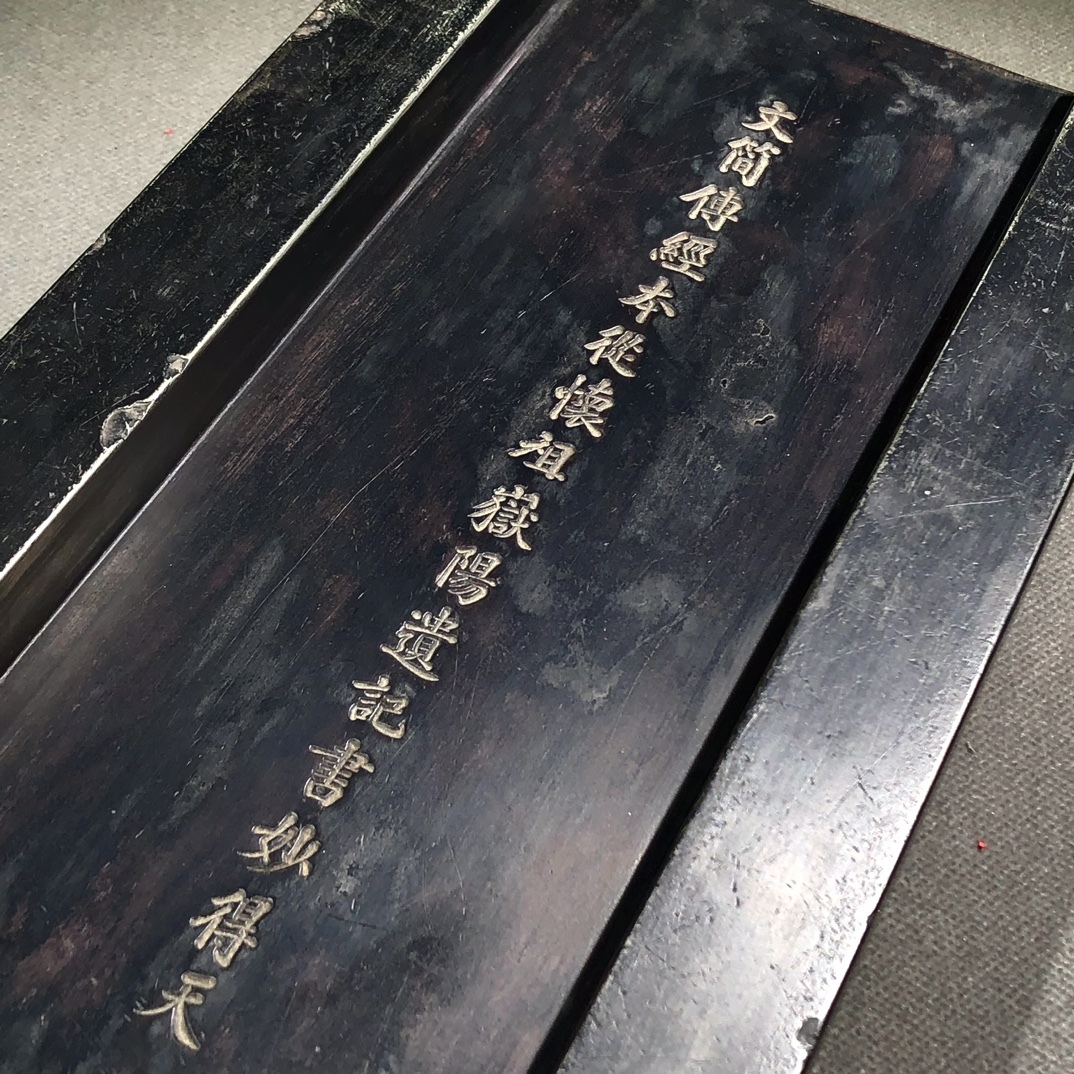 文簡傳經本從懷祖嶽陽遺記書妙得天